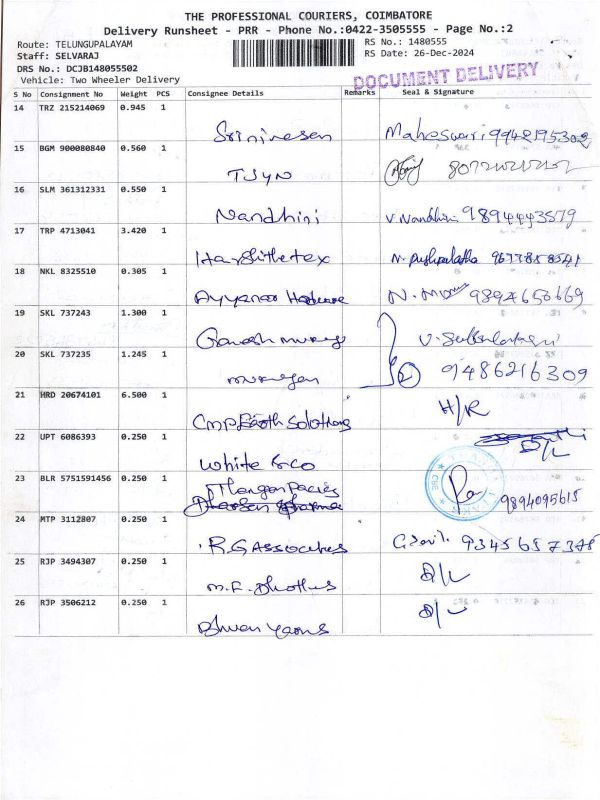 THE PROFESSIONAL COURIERS, COIMBATORE
Delivery Runsheet - PRR - Phone No.:0422-3505555 - Page No.:2
Route: TELUNGUPALAYAM RS No.: 1480555
Staff: SELVARAJ RS Date: 26-Dec-2024
DRS No.: DCJB148055502
Vehicle: Two Wheeler Delivery
DOCUMENT DELIVERY
S No Consignment No Weight PCS Consignee Details Remarks Seal & Signature
14 TRZ 215214069 0.945 1
Srinivasen Maheswari 9942195302
15 BGM 900080840 0.560 1
TSYN
16 SLM 361312331 0.550 1
Nandhini V. Nandhini 9894443579
17 TRP 4713041 3.420 1
Harshithetex N. Pushpalatha 9677858541
18 NKL 8325510 0.305 1
Ayyanar Hadware 9894650669
19 SKL 737243 1.300 1
Ganesh murugan
20 SKL 737235 1.245 1
murugan 2 9486216309
21 HRD 20674101 6.500 1
CMP Earth Solutions H/R
22 UPT 6086393 0.250 1
White & co D/L
23 BLR 5751591456 0.250 1
9894095615
24 MTP 3112807 0.250 1
R.G Associates 9345657378
25 RJP 3494307 0.250 1
D/L
26 RJP 3506212 0.250 1
D/L